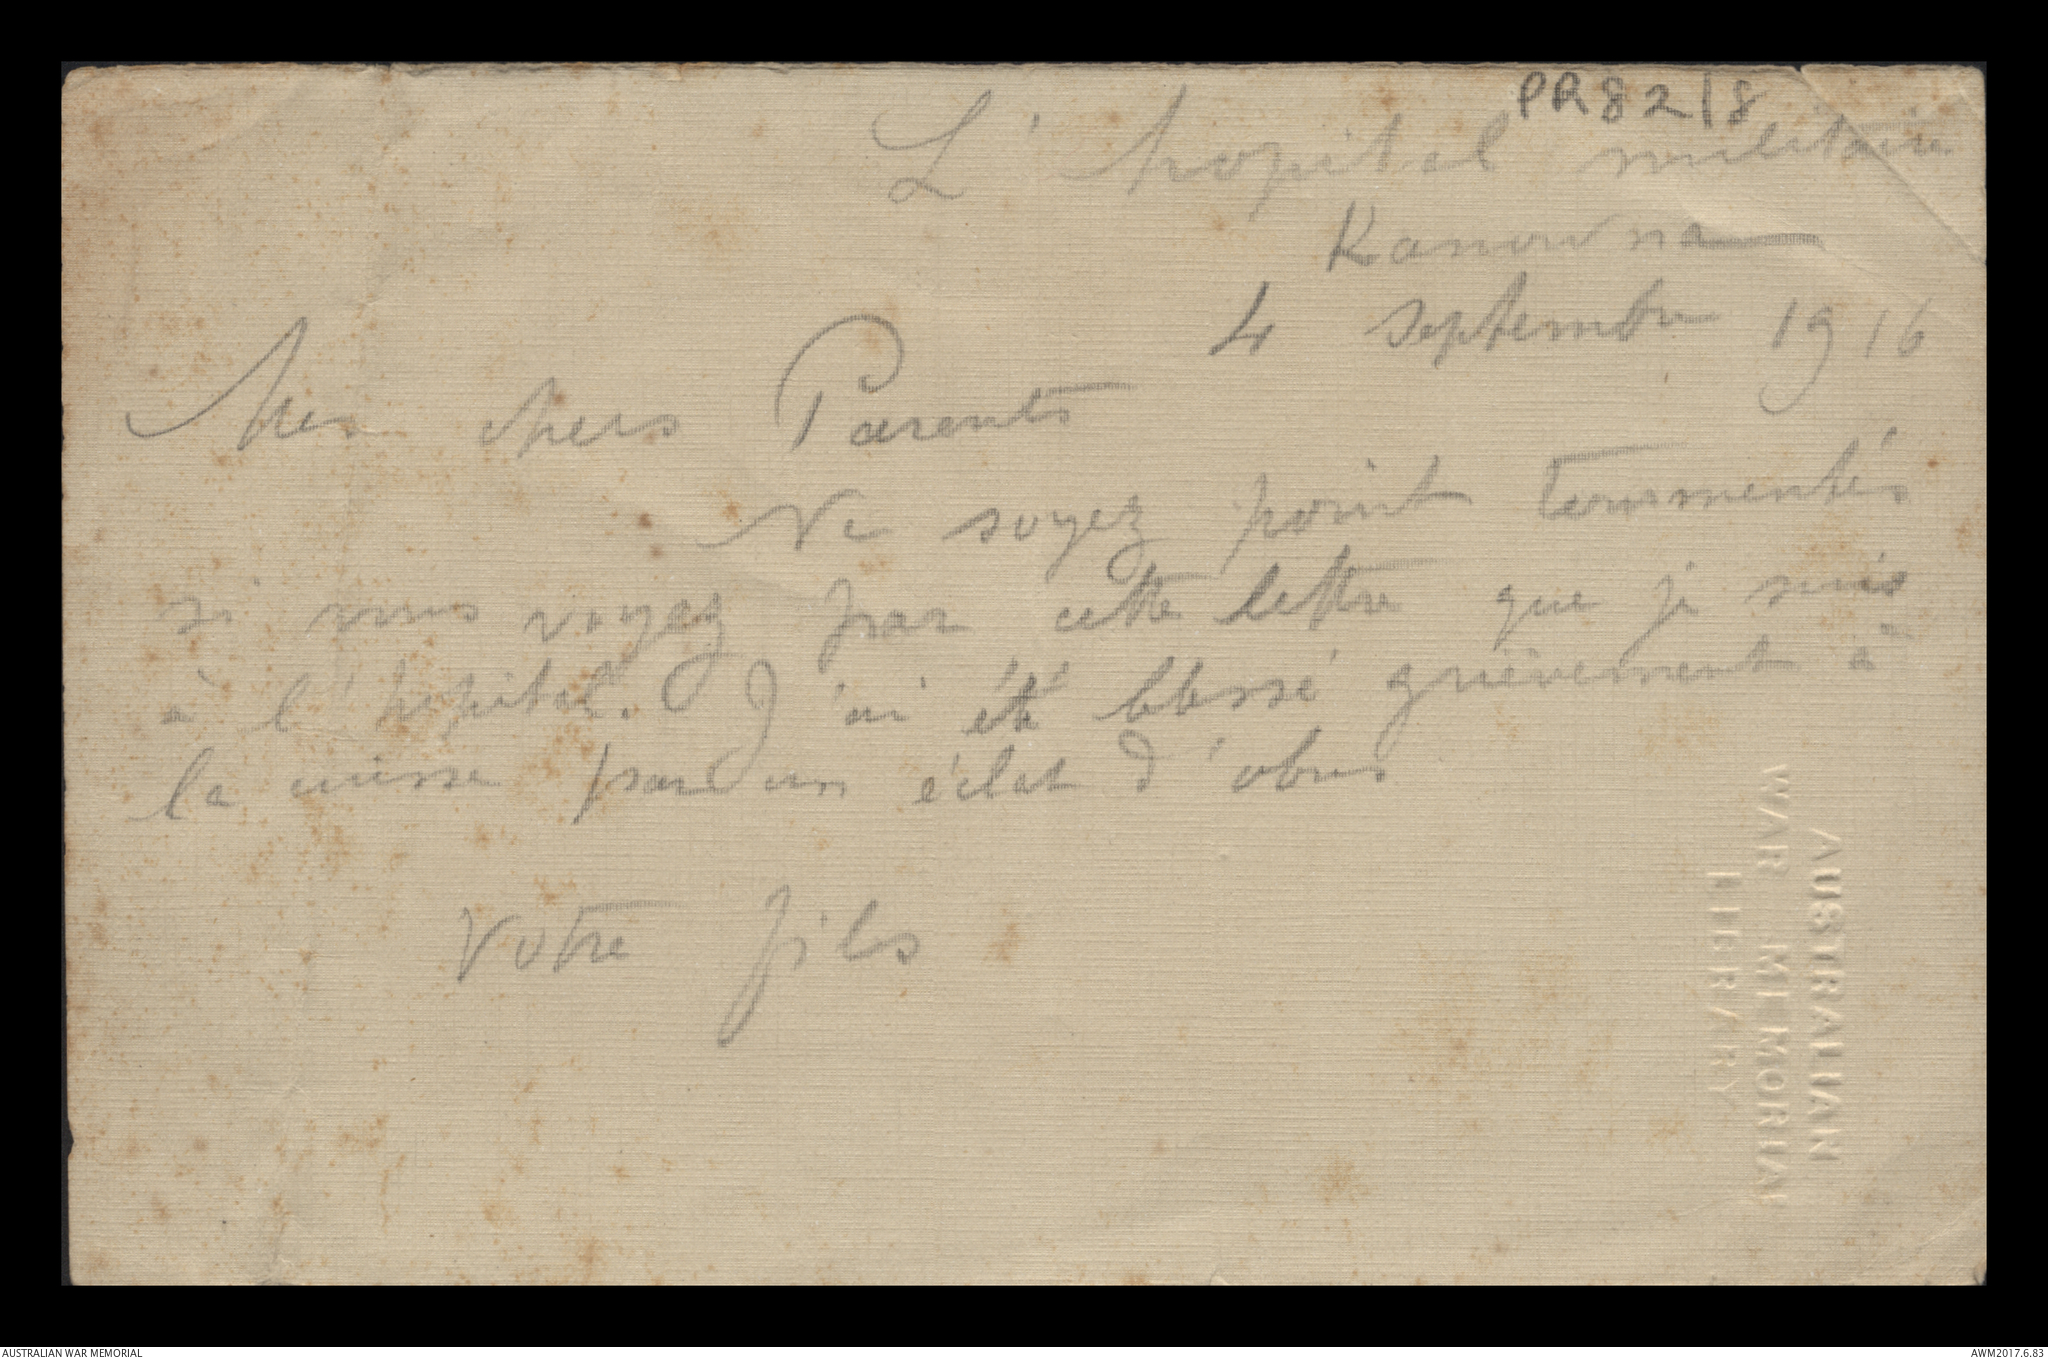 PR82/8
L'hopital militaire
Kanowna
4 septembre 1916
Mes chers Parents
Ne soyez point tourmentés
si vous voyez par cette lettre que je suis
à l'hôpital. J'ai été blessé grièvement à
la cuisse par un éclat d'obus
Votre fils
AUSTRALIAN
WAR MEMORIAL
LIBRARY
AUSTRALIAN WAR MEMORIAL
AWM2017.6.83